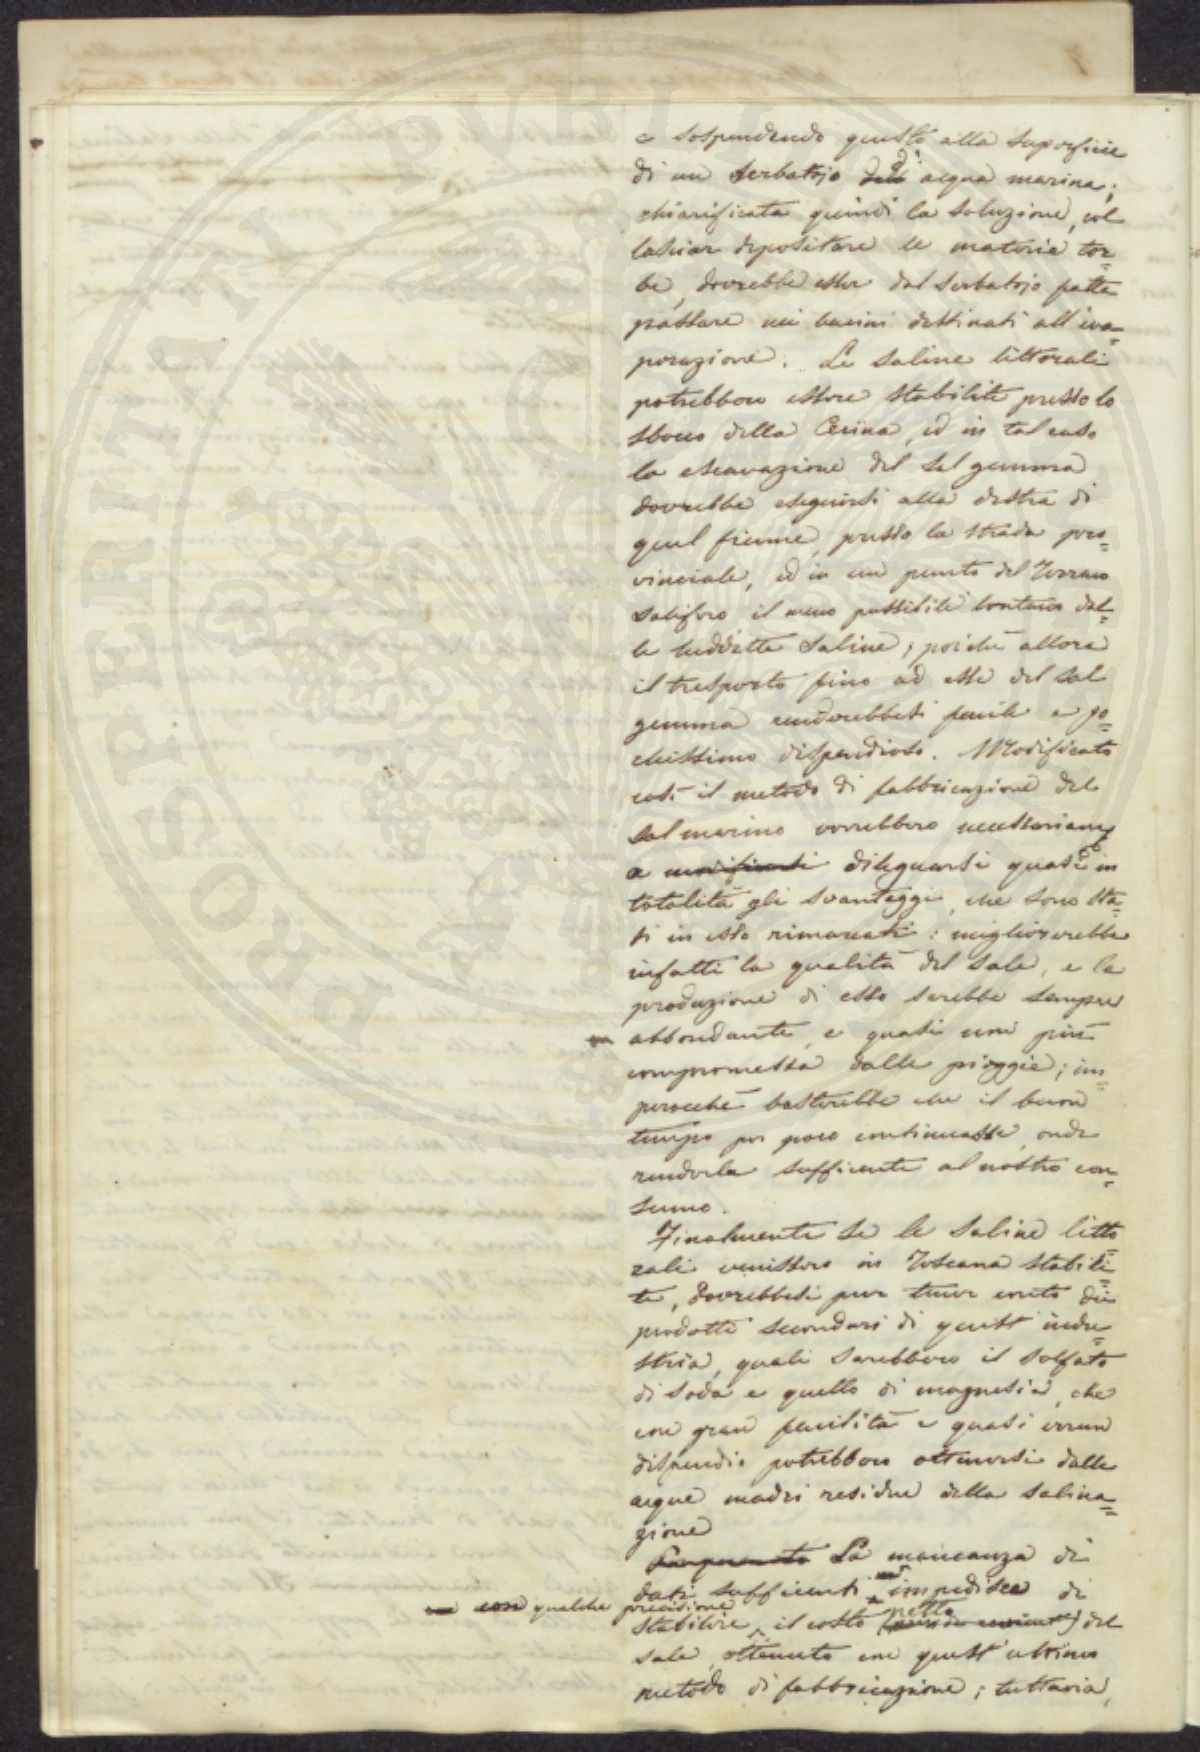 e sospendendo questo alla superficie
di un serbatojo dell' d' acqua marina;
chiarificata quindi la soluzione, col
lasciar depositare le materie tor=
be, dovrebbe esser dal serbatojo fatta
passare nei bacini destinati all' eva=
porazione. Le saline littorali
potrebbero essere stabilite presso lo
sbocco della Cecina, ed in tal caso
la escavazione del sal gemma
dovrebbe eseguirsi alla destra di
quel fiume, presso la strada pro=
vinciale, ed in un punto del terreno
salifero il meno possibile lontano dal=
le suddette saline; poichè allora
il trasporto fino ad esse del sal
gemma renderebbesi facile e po=
chissimo dispendioso. Modificato
così il metodo di fabbricazione del
sal marino verrebbero necessariam.te
a modificarsi dileguarsi quasi in
totalità gli svantaggi, che sono sta=
ti in esso rimarcati: migliorerebbe
infatti la qualità del sale, e la
produzione di esso sarebbe sempre
abbondante, e quasi non più
compromessa dalle pioggie; im=
perocchè basterebbe che il buon
tempo per poco continuasse, onde
renderla sufficiente al nostro con=
sumo.
Finalmente se le saline litto
rali venissero in Toscana stabili=
te, dovrebbesi pure tener conto dei
prodotti secondari di quest' indu=
stria, quali sarebbero il solfato
di soda e quello di magnesia, che
con gran facilità e quasi verun
dispendio potrebbero ottenersi dalle
acque madri residue della salina=
zione
La mancanza di
dati sufficienti impedisce di
con qualche precisione
stabilire il costo netto del
sale, ottenuto con quest' ultimo
metodo di fabbricazione; tuttavia,
PROSPERITATI PVBLICAE